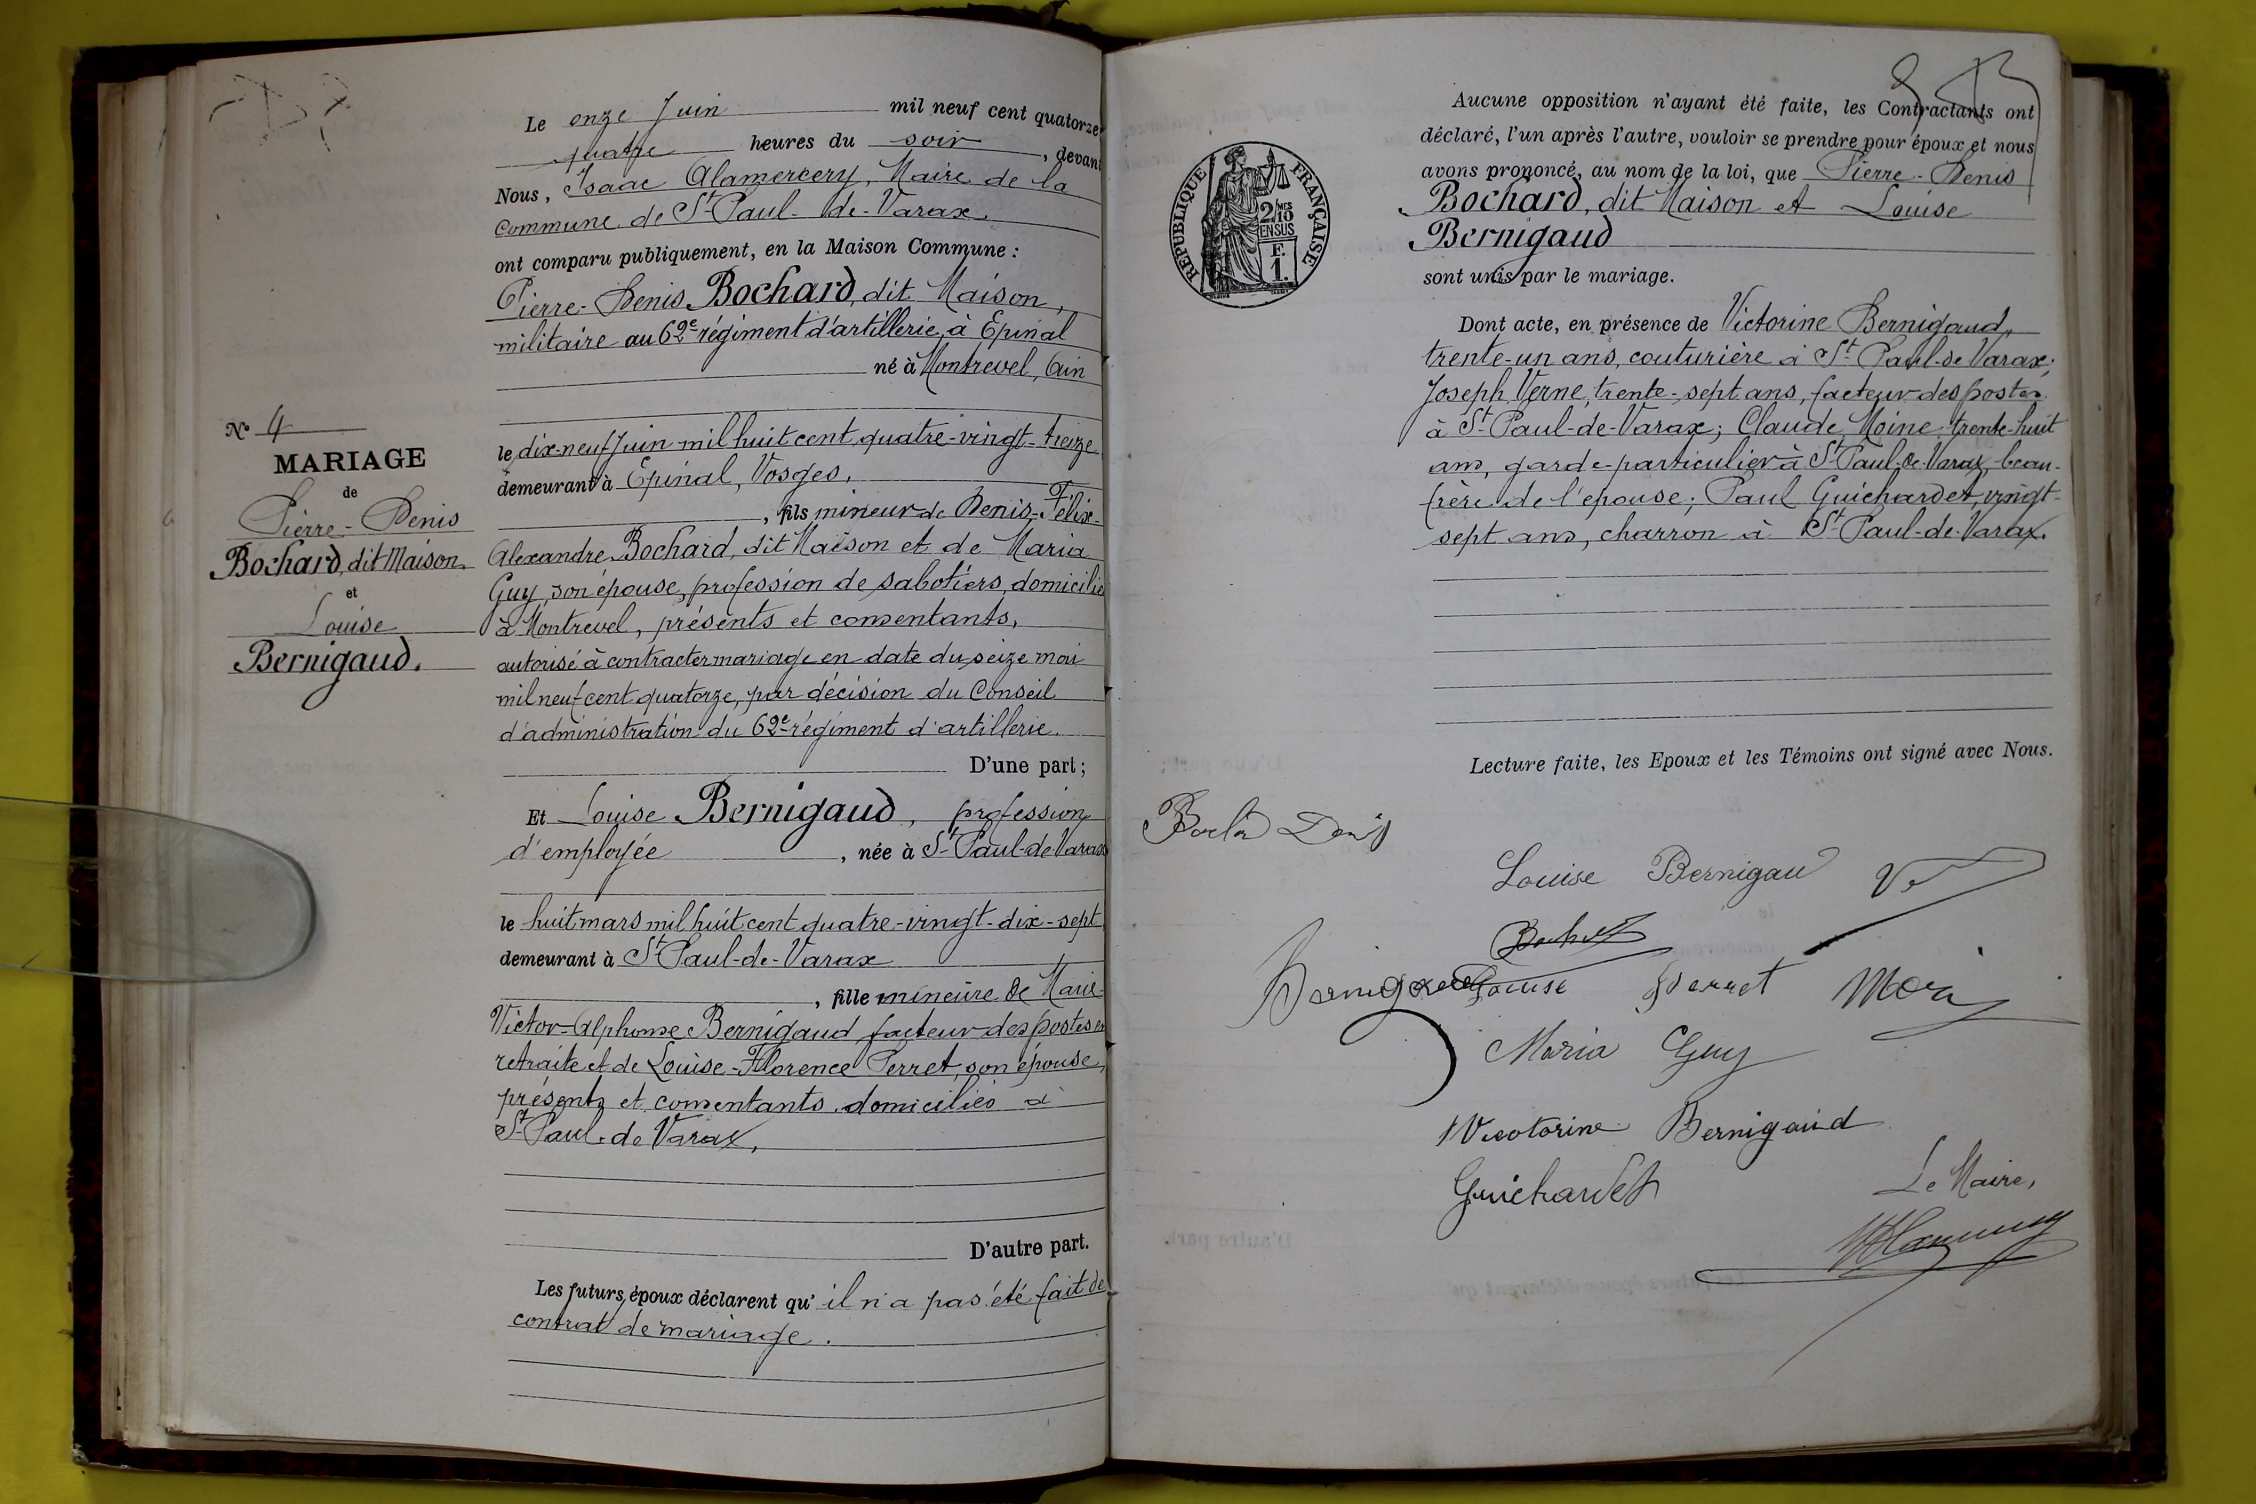 Le onze Juin mil neuf cent quatorze
quatre heures du soir, devant
Nous, Isaac Alamercery, Maire de la
commune de St-Paul-de-Varax.
ont comparu publiquement, en la Maison Commune :
Pierre-Denis Bochard, dit Maison,
militaire au 62e régiment d'artillerie, à Epinal
né à Montrevel, Ain
No 4
MARIAGE
de
Pierre-Denis
Bochard, dit Maison,
et
Louise
Bernigaud.
le dix-neuf Juin mil huit cent quatre-vingt-treize
demeurant à Epinal, Vosges,
, fils mineur de Denis-Félix-
Alexandre Bochard, dit Maison et de Maria
Guy, son épouse, profession de sabotiers, domiciliés
à Montrevel, présents et consentants,
autorisé à contracter mariage en date du seize mai
mil neuf cent quatorze, par décision du Conseil
d'administration du 62e régiment d'artillerie.
D'une part ;
Et Louise Bernigaud, profession
d'employée, née à St-Paul-de-Varax
le huit mars mil huit cent quatre-vingt-dix-sept
demeurant à St-Paul-de-Varax
, fille mineure de Marie-
Victor-Alphonse Bernigaud, facteur des postes en
retraite et de Louise-Florence Perret, son épouse,
présents et consentants, domiciliés à
St-Paul-de-Varax,
D'autre part.
Les futurs époux déclarent qu'il n'a pas été fait de
contrat de mariage.
REPUBLIQUE FRANÇAISE
2/10 MES
EN SUS
F.
1.
Aucune opposition n'ayant été faite, les Contractants ont
déclaré, l'un après l'autre, vouloir se prendre pour époux et nous
avons prononcé, au nom de la loi, que Pierre-Denis
Bochard, dit Maison et Louise
Bernigaud
sont unis par le mariage.
Dont acte, en présence de Victorine Bernigaud,
trente-un ans, couturière à St-Paul-de-Varax;
Joseph Verne, trente-sept ans, facteur des postes
à St-Paul-de-Varax; Claude Moine trente-huit
ans, garde-particulier à St-Paul-de-Varax, beau-
frère de l'épouse; Paul Guichardet, vingt-
sept ans, charron à St-Paul-de-Varax.
Lecture faite, les Epoux et les Témoins ont signé avec Nous.
Denis
Louise Bernigaud
Louise Perret
Maria Guy
Victorine Bernigaud
Guichardet
Le Maire,